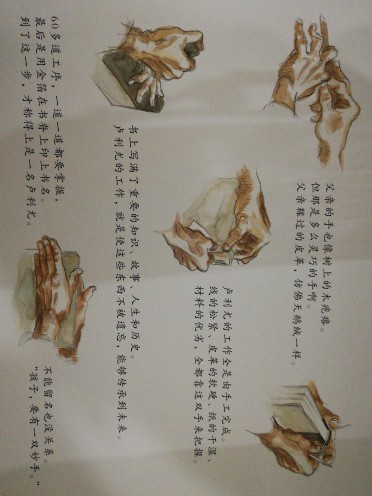 父亲的手也像树上的木疙瘩。
但那是多么灵巧的手啊。
父亲鞣过的皮革，仿佛天鹅绒一样。
卢利尤的工作全是由手工完成。
线的松紧、皮革的软硬、纸的干湿、
材料的优劣，全都靠这双手来把握。
书上写满了重要的知识、故事、人生和历史。
卢利尤的工作，就是使这些东西不被遗忘，能够传承到未来。
60多道工序，一道一道都要掌握，
最后是用金箔在书脊上印上书名。
到了这一步，才称得上是一名卢利尤。
不能留名也没关系。
“孩子，要有一双妙手。”